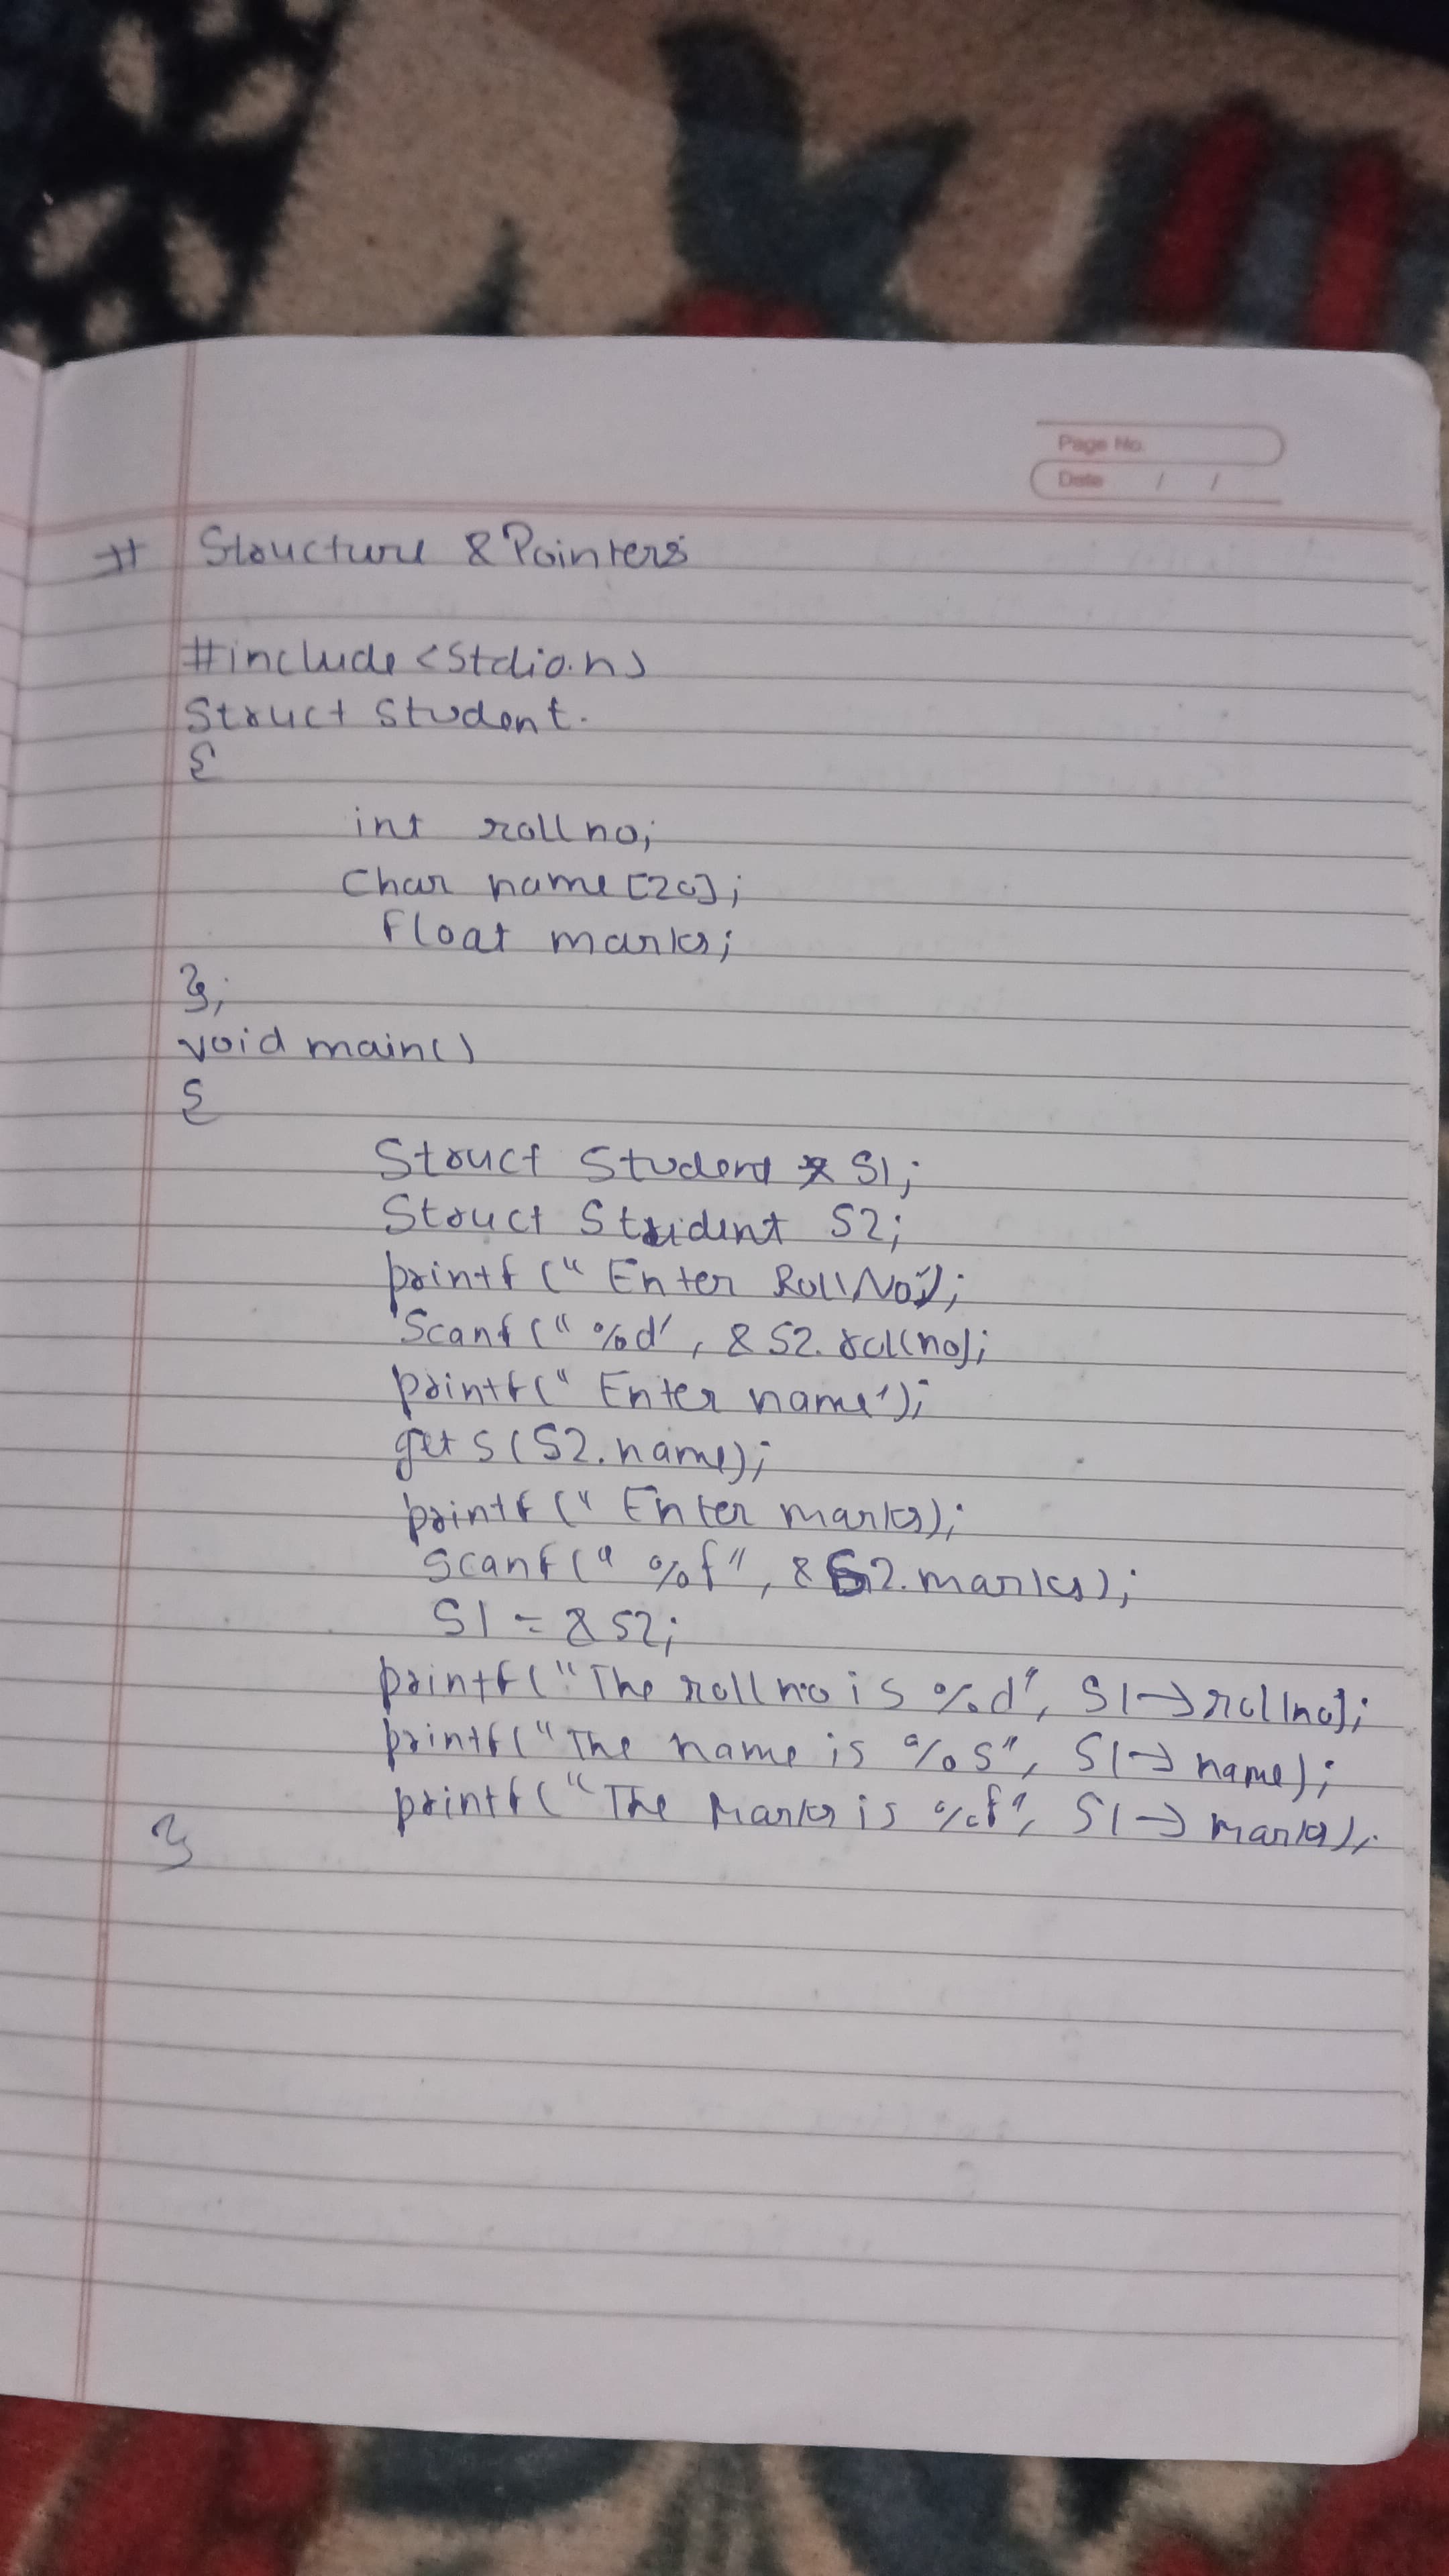 Page No.
Date / /
# Structure & Pointers
#include <stdio.h>
Struct Student.
{
int rollno;
Char name [20];
float marks;
};
void main()
{
Struct Student * S1;
Struct Student S2;
printf (" Enter Roll No");
Scanf (" %d", & S2. rollno);
printf (" Enter name");
gets (S2. name);
printf (" Enter marks);
scanf (" %f", & S2. marks);
S1 = & S2;
printf ("The rollno is %d", S1→rollno);
printf ("The name is %s", S1→ name);
printf ("The Marks is %f", S1→ marks);
}